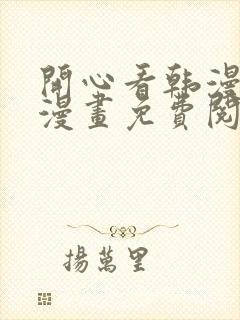 開心看韩漫
漫畫免費閱
揚萬里